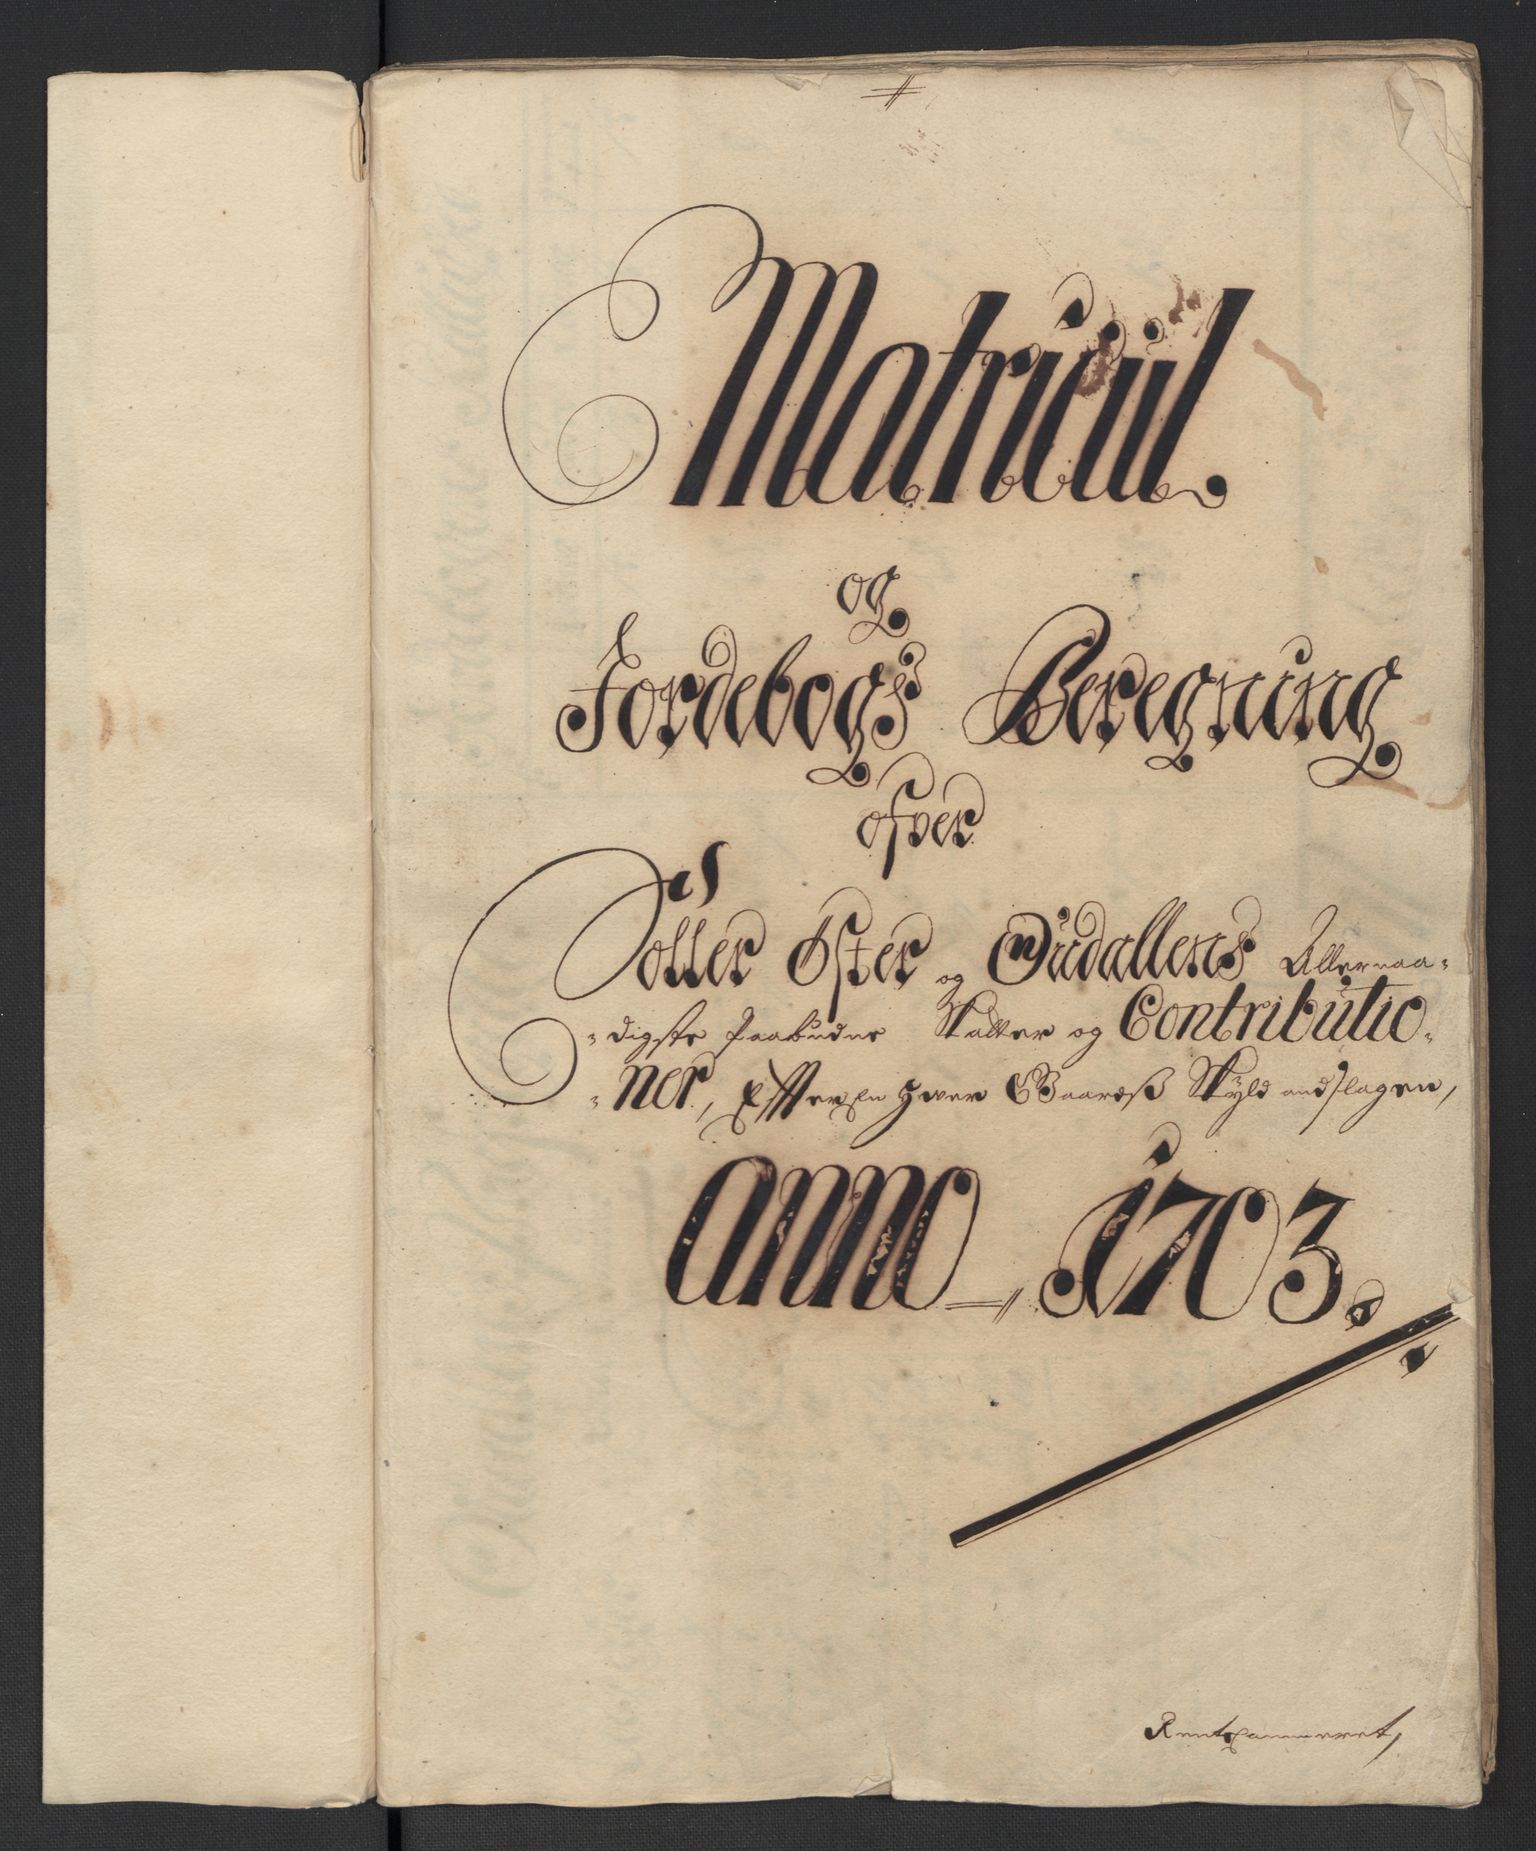 Matricul.
og
Jordebogs Beregning
ofver
Soller Øster og Gudallens Allernaa-
-digste Paabudne Skatter og Contributio-
-ner, Efter En hver Gaards Skyld andslagen,
anno 1703.
Rentecammeret,